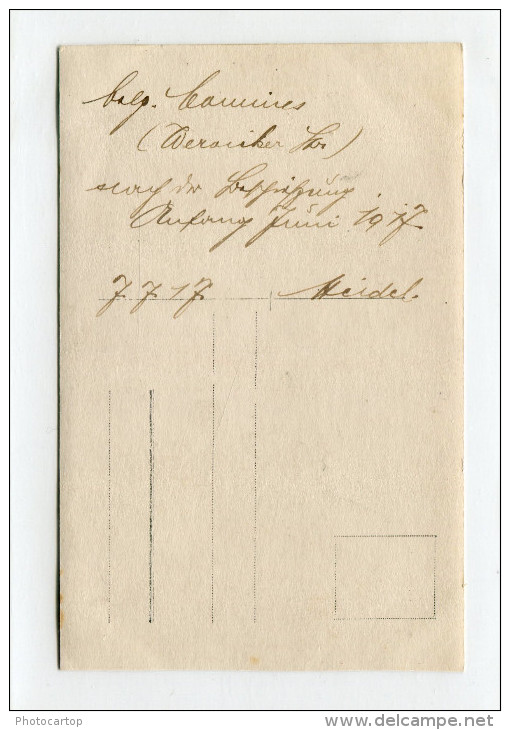 belg. Comines
(Wervicker Str)
nach der Beschießung
Anfang Juni 1917.
7. 7. 17. Heidel.
Photocartop
www.delcampe.net